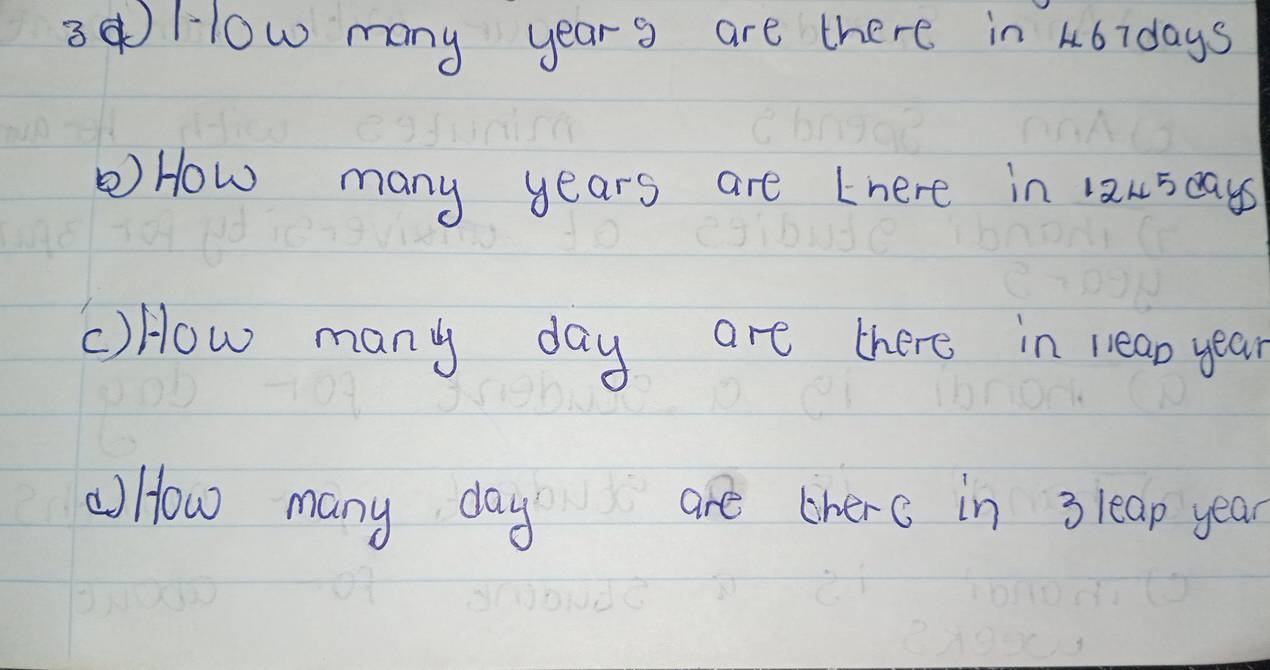 3a) How many years are there in 467days
b) How many years are there in 1245days
c) How many day are there in 1leap year
d) How many day are there in 3 leap year